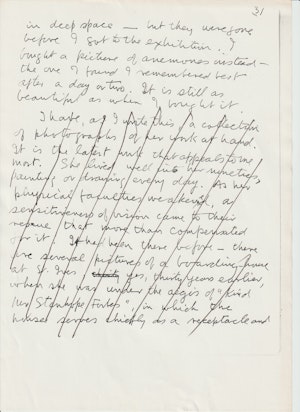 31
in deep space — but they were gone
before I got to the exhibition. I
bought a picture of anemones instead —
the one I found I remembered best
after a day or two. It is still as
beautiful as when I bought it.
I have, as I write this, a collection
of photographs of her work at hand.
It is the latest work that appeals to me
most. She lived well into her nineties,
painting or drawing every day. As her
physical faculties weakened, a
sensitiveness of vision came to their
rescue that more than compensated
for it. It had been there before — there
are several pictures of a boarding house
at St. Ives yes, thirty years earlier,
when she was under the aegis of "kind
Mrs Stanhope Forbes", in which the
house serves chiefly as a receptacle and